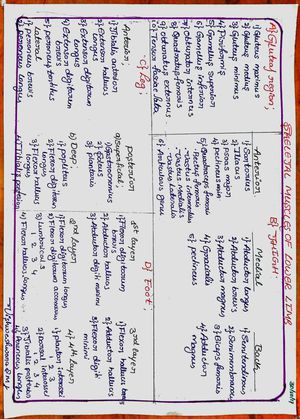 SKELETAL MUSCLES OF LOWER LIMB
A) Gluteal region:
1) Gluteus maximus
2) Gluteus medius
3) Gluteus minimus
4) Piriformis
5) Gemellus superior
6) Gemellus inferior
7) obturator internus
8) Quadratus femoris
9) obturatus externus
10) Tensor fasciae lata
B) THIGH:
Anterior
1) Sartorius
2) Iliacus
3) Psoas major
4) Pectineus
5) Quadriceps femoris
Rectus femoris
Vastus intermedius
Vastus medialis
Vastus Lateralis
6) Articularis genu
Medial
1) Adductor longus
2) Adductor brevis
3) Adductor magnus
4) Gracialis
5) Pectineus
Back
1) Semitendinosus
2) Semimembranosus
3) Biceps femoris
4) Adductor magnus
C) Leg:
Anterior:
1) Tibialis anterior
2) Extensor hallucis longus
3) Extensor digitorum longus
4) Extensor digitorum brevis
5) peroneus tertius
Lateral
1) peroneus brevis
2) peroneus longus
posterior
a) Superficial:
1) Gastrocnemius
2) Soleus
3) plantaris
b) Deep:
1) popliteus
2) Flexor digitorum longus
3) Flexor hallucis longus
4) Tibialis posterior
D) Foot:
1st layer
1) Flexor digitorum brevis
2) Abductor hallucis
3) Abductor digiti minimi
2nd layer
1) Flexor digitorum longus
2) Flexor digitorum accessorius
3) Lumbricals
1 2 3 4
4) Flexor hallucis longus
3rd layer
1) Flexor hallucis brevis
2) Adductor hallucis
3) Flexor digiti minimi
4th layer
1) plantar interossei
1 2 3
2) Dorsal interossei
1 2 3 4
3) Tibialis posterior
4) Peroneus longus